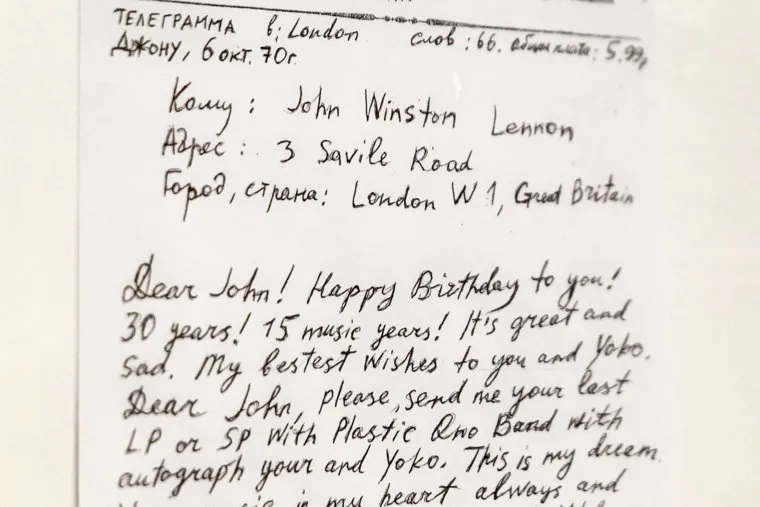 ТЕЛЕГРАММА в: London слов: 66. общая плата: 5.99р
Джону, 6 окт. 70г.
Кому: John Winston Lennon
Адрес: 3 Savile Road
Город, страна: London W 1, Great Britain
Dear John! Happy Birthday to you!
30 years! 15 music years! It's great and
Sad. My bestest wishes to you and Yoko.
Dear John, please, send me your last
LP or SP with Plastic Ono Band with
autograph your and Yoko. This is my dream.
music is in my heart always and